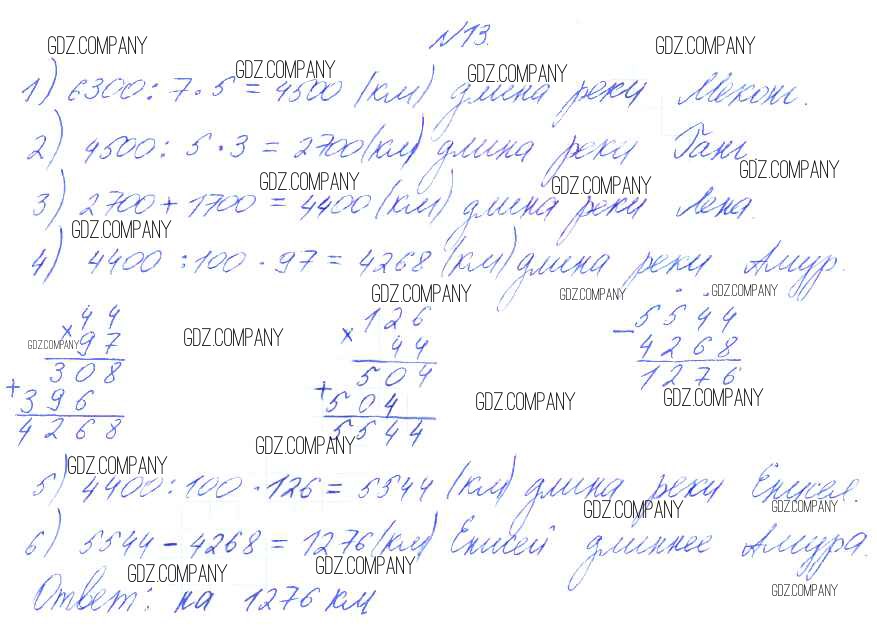 №13.
GDZ.COMPANY GDZ.COMPANY
GDZ.COMPANY GDZ.COMPANY
1) 6300 : 7 · 5 = 4500 (км) длина реки Меконг.
2) 4500 : 5 · 3 = 2700 (км) длина реки Ганг.
GDZ.COMPANY
GDZ.COMPANY GDZ.COMPANY
3) 2700 + 1700 = 4400 (км) длина реки Лена.
GDZ.COMPANY
4) 4400 : 100 · 97 = 4268 (км) длина реки Амур.
GDZ.COMPANY GDZ.COMPANY GDZ.COMPANY
× 44
97
308
+ 396
4268
GDZ.COMPANY
GDZ.COMPANY
× 126
44
504
+ 504
5544
− 5544
4268
1276
GDZ.COMPANY GDZ.COMPANY
GDZ.COMPANY
GDZ.COMPANY
5) 4400 : 100 · 126 = 5544 (км) длина реки Енисея.
GDZ.COMPANY GDZ.COMPANY
6) 5544 − 4268 = 1276 (км) Енисей длиннее Амура.
GDZ.COMPANY GDZ.COMPANY
Ответ: на 1276 км
GDZ.COMPANY